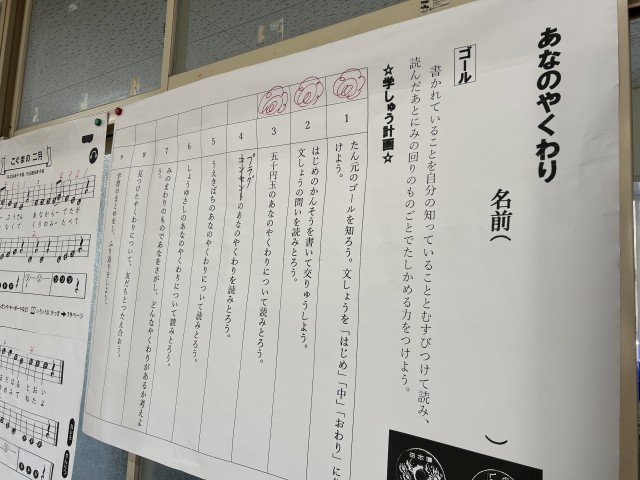 あなのやくわり
名前( )
ゴール
書かれていることを自分の知っていることとむすびつけて読み、
読んだあとにみの回りのものごとでたしかめる力をつけよう。
☆学しゅう計画☆
1 たん元のゴールを知ろう。文しょうを「はじめ」「中」「おわり」に
けよう。
2 はじめのかんそうを書いて交りゅうしよう。
文しょうの問いを読みとろう。
3 五十円玉のあなのやくわりについて読みとろう。
4 プラグ
コンセントのあなのやくわりを読みとろう。
5 うえきばちのあなのやくわりについて読みとろう。
6 しょうゆさしのあなのやくわりについて読みとろう。
7 みのまわりのものであなをさがし、どんなやくわりがあるか考えよ
う。
8 見つけたやくわりについて、友だちとつたえ合おう。
9 学習のまとめをし、ふり返りをしよう。
日本国
こぐまの二月